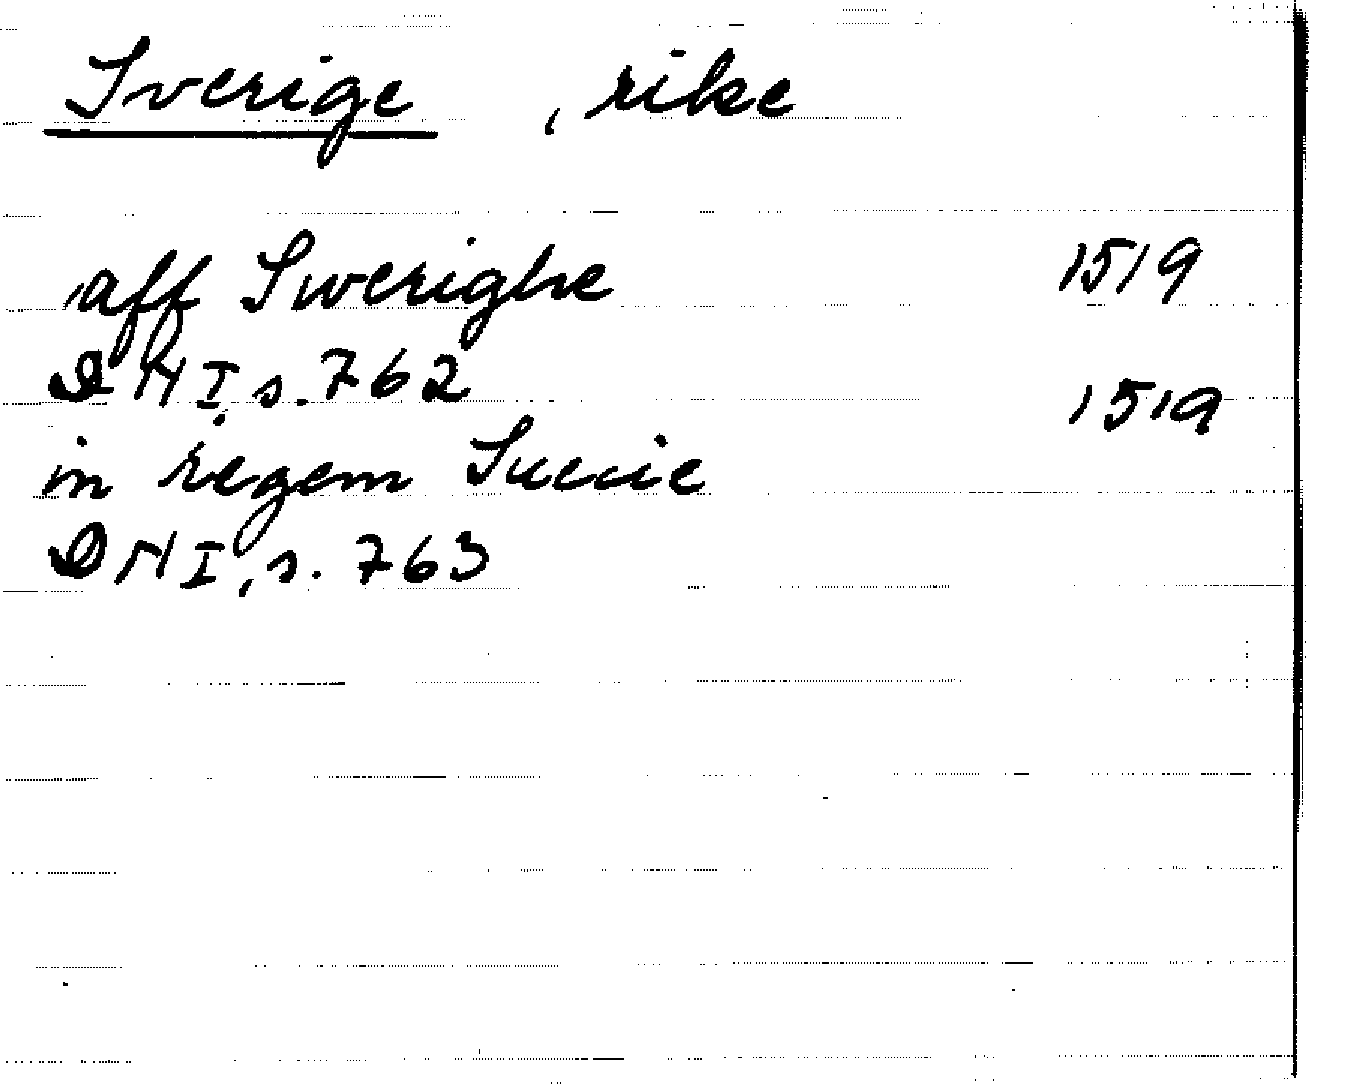 Sverige, rike
aff Swerighe 1519
DMI, s. 762
in regem Suecie 1519
DMI, s. 763